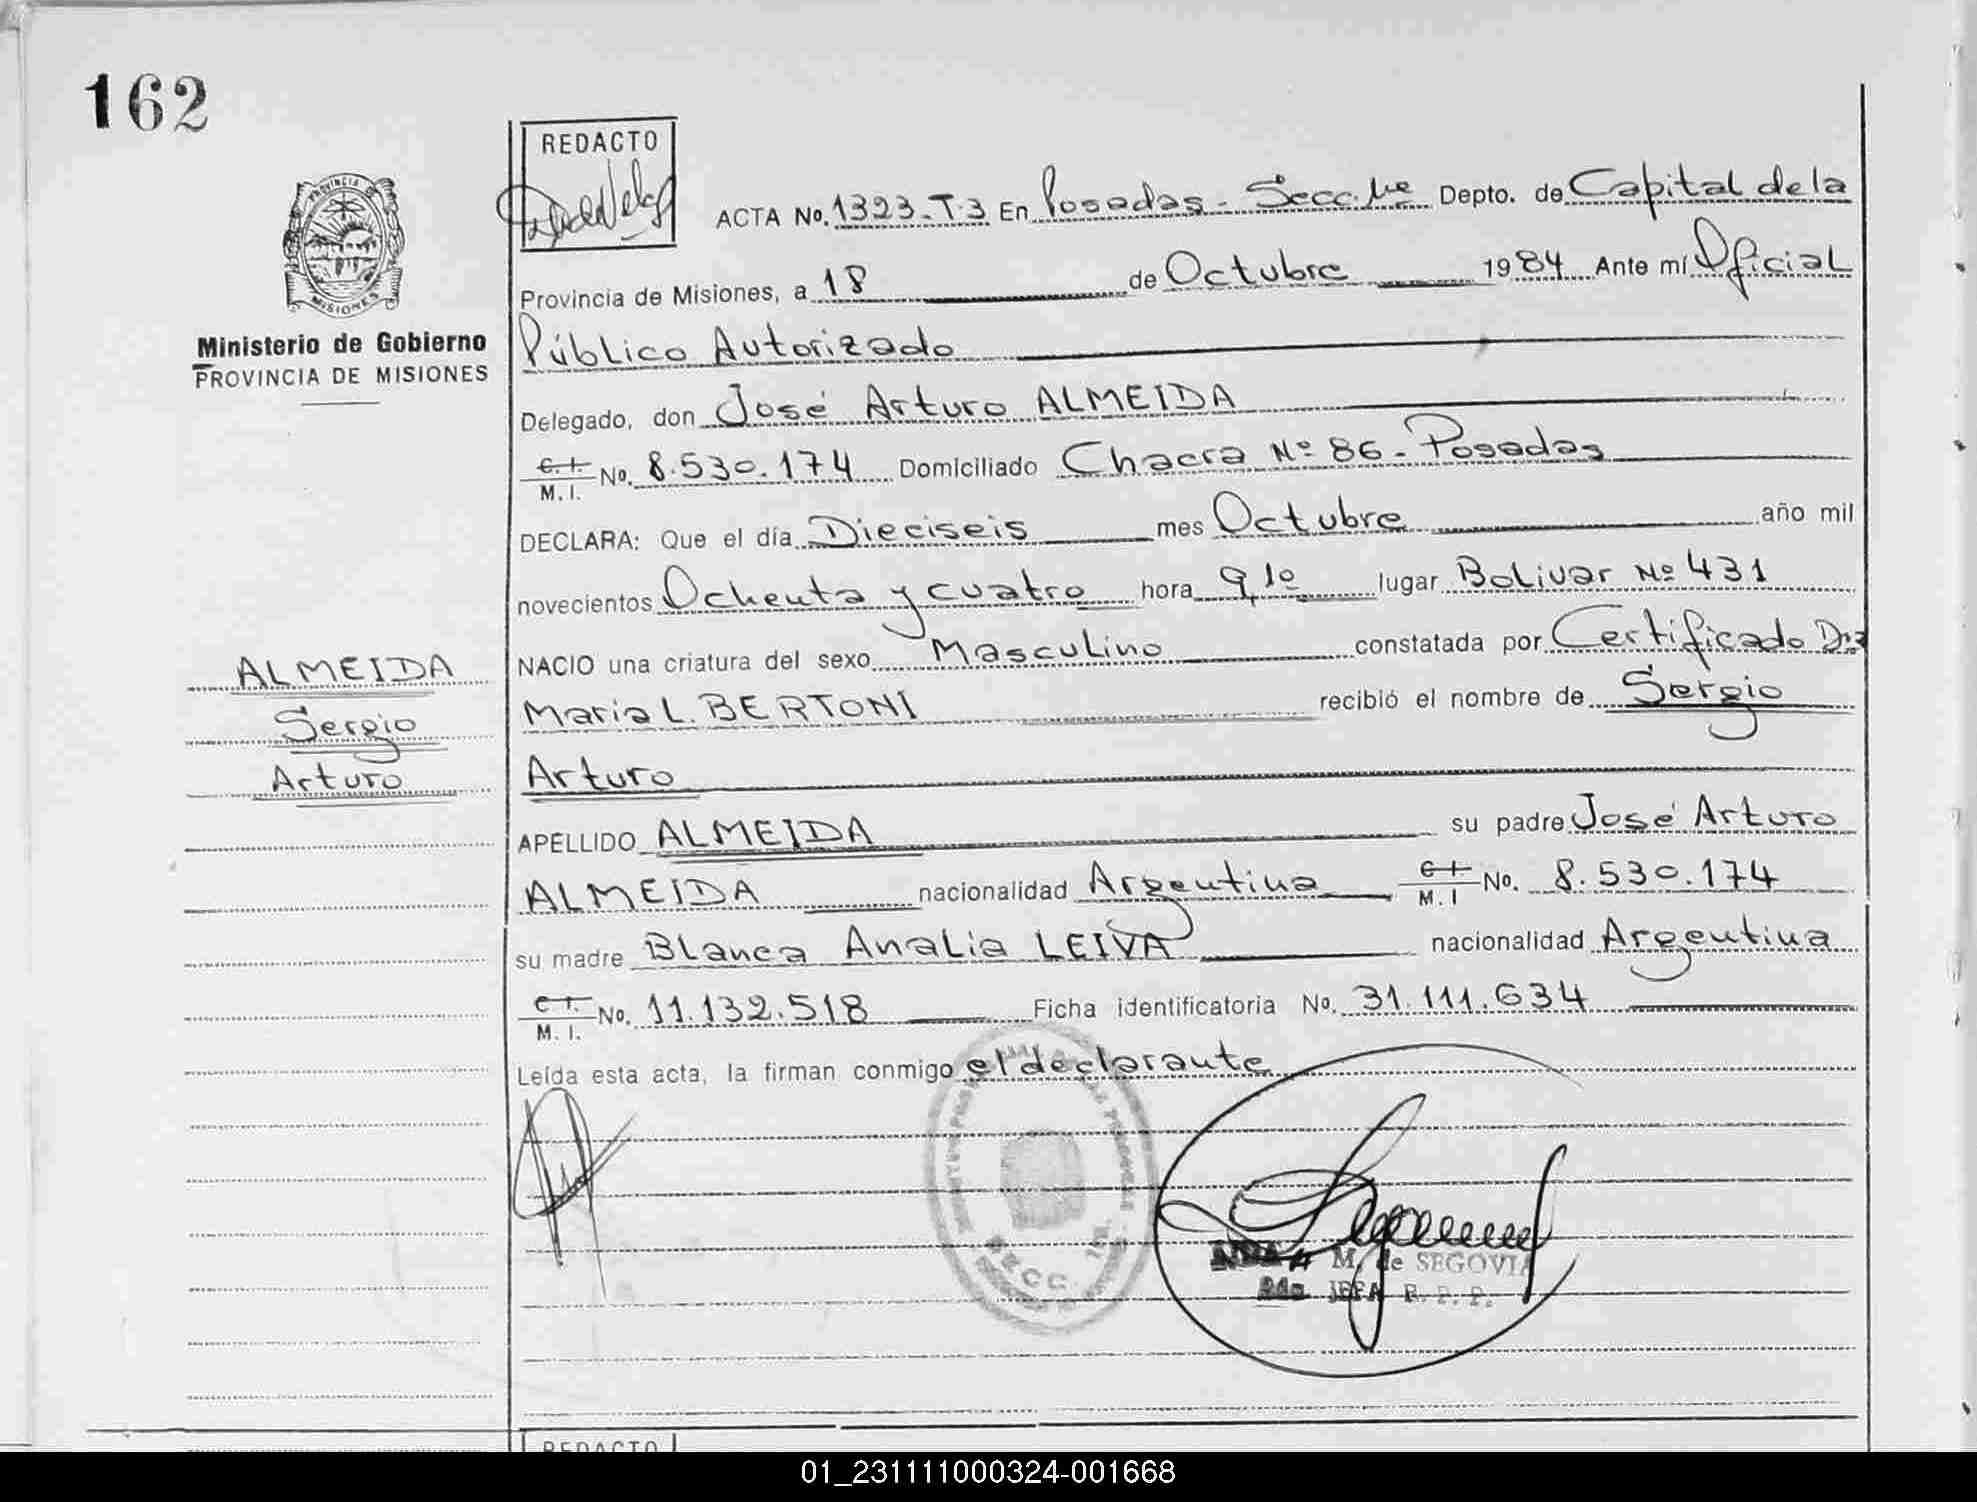 162
REDACTO
ACTA No. 1323-T.3 En Posadas - Secc. 1re Depto. de Capital de la
Provincia de Misiones, a 18 de Octubre 1984 Ante mí Oficial
Ministerio de Gobierno
PROVINCIA DE MISIONES
Público Autorizado
Delegado, don José Arturo ALMEIDA
C.I. M.I. No. 8.530.174 Domiciliado Chacra Nº 86 - Posadas
DECLARA: Que el día Dieciseis mes Octubre año mil
novecientos Ochenta y cuatro hora 9,10 lugar Bolivar Nº 431
ALMEIDA
Sergio
Arturo
NACIO una criatura del sexo Masculino constatada por Certificado Dra
Maria L. BERTONI recibió el nombre de Sergio
Arturo
APELLIDO ALMEIDA su padre José Arturo
ALMEIDA nacionalidad Argentina C.I. M.I No. 8.530.174
su madre Blanca Analia LEIVA nacionalidad Argentina
C.I. M.I. No. 11.132.518 Ficha identificatoria No. 31.111.634
Leída esta acta, la firman conmigo el declarante
SECC. 1ra.
M. de SEGOVIA
JEFA R. P. P.
REDACTO
01_231111000324-001668